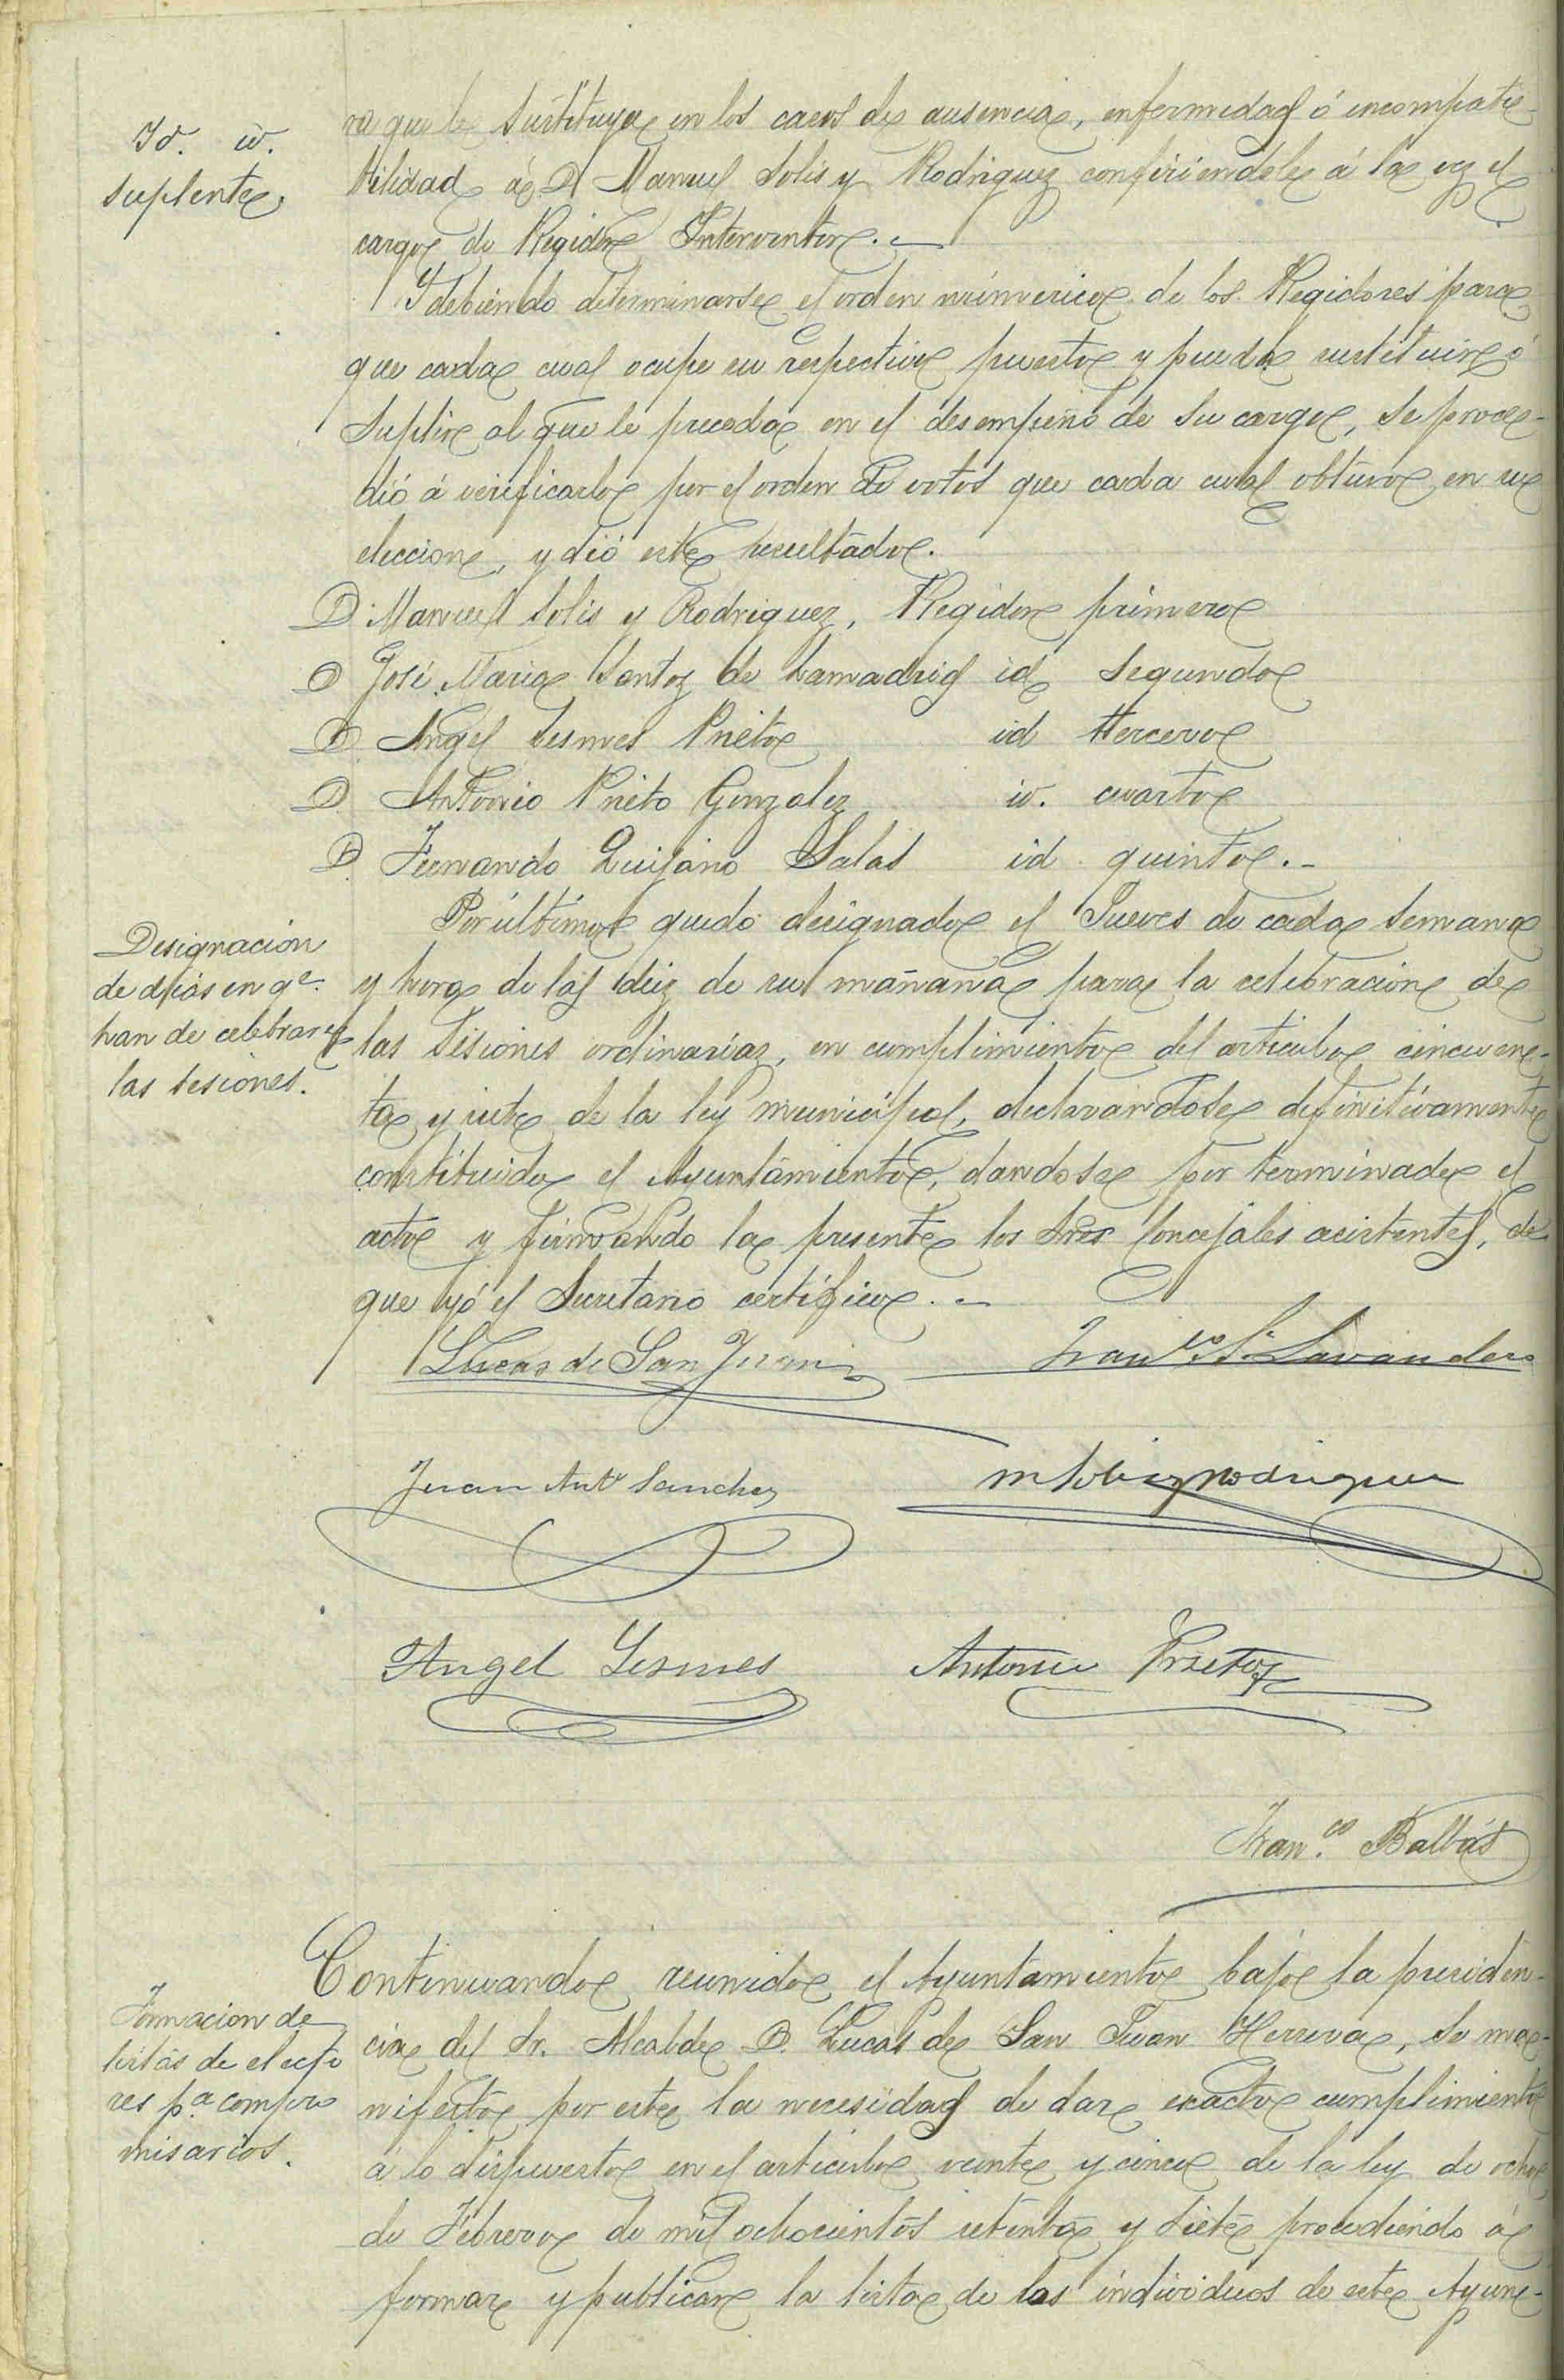 Id. id.
suplente.
ra que le sustituya en los casos de ausencia, enfermedad ó incompati-
bilidad á D Manuel Solis y Rodriguez confiriendole á la vez el
cargo de Regidor Interventor.
Y debiendo determinarse el orden númerico de los Regidores para
que cada cual ocupe su respectivo puesto y pueda sustituir ó
suplir al que le preceda en el desempeño de su cargo, se proce-
dió á verificarlo por el orden de votos que cada cual obtuvo en su
eleccion, y dió este resultado.
D. Manuel Solis y Rodriguez, Regidor primero
D José Maria Santos de Lamadrid id segundo
D Angel Lesmes Prieto id tercero
D Antonio Prieto Gonzalez id. cuarto
D Fernando Quijano Salas id quinto.-
Designación
de dias en qe.
han de celebrarse
las sesiones.
Por último quedo designado el Jueves de cada semana
y hora de las diez de su mañana para la celebracion de
las sesiones ordinarias, en cumplimiento del articulo cincuen-
ta y siete de la ley municipal, declarandose definitivamente
constituido el Ayuntamiento, dandose por terminado el
acto y firmando la presente los Sres Concejales asistentes, de
que yó el Secretario certifico.-
Lucas de San Juan
Franco S. Lavandero
Juan Anto Sanchez
M Solis y Rodriguez
Angel Lesmes
Antonio Prieto
Franco. Balbás
Formacion de
listas de electo
res pa. compro
misarios.
Continuando reunido el Ayuntamiento bajo la presiden-
cia del Sr. Alcalde D. Lucas de San Juan Herrera, se ma-
nifestó por este la necesidad de dar exacto cumplimiento
á lo dispuesto en el articulo veinte y cinco de la ley de ocho
de Febrero de mil ochocientos setenta y siete procediendo á
formar y publicar la lista de los individuos de este Ayun-